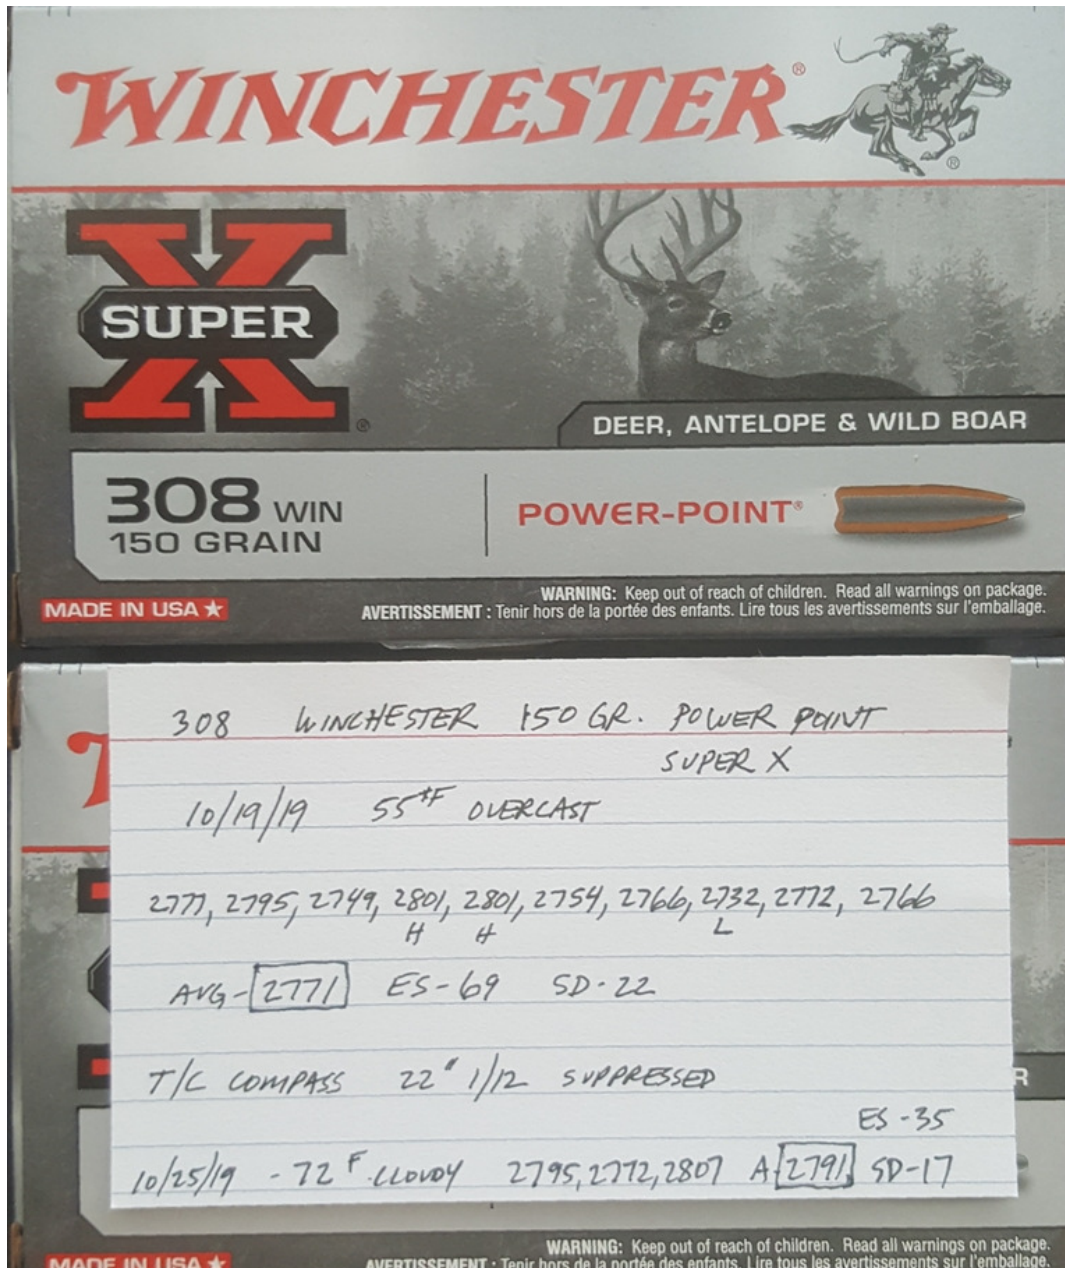 WINCHESTER®
®
SUPER X®
DEER, ANTELOPE & WILD BOAR
308 WIN
150 GRAIN
POWER-POINT®
MADE IN USA
WARNING: Keep out of reach of children. Read all warnings on package.
AVERTISSEMENT : Tenir hors de la portée des enfants. Lire tous les avertissements sur l'emballage.
308 WINCHESTER 150 GR. POWER POINT
SUPER X
10/19/19 55°F OVERCAST
2777, 2795, 2749, 2801, 2801, 2754, 2766, 2732, 2772, 2766
H H L
AVG-2771 ES-69 SD-22
T/C COMPASS 22" 1/12 SUPPRESSED
R
ES-35
10/25/19 -72 F CLOUDY 2795, 2772, 2807 A-2791 SD-17
WARNING: Keep out of reach of children. Read all warnings on package.
MADE IN USA
AVERTISSEMENT : Tenir hors de la portée des enfants. Lire tous les avertissements sur l'emballage.